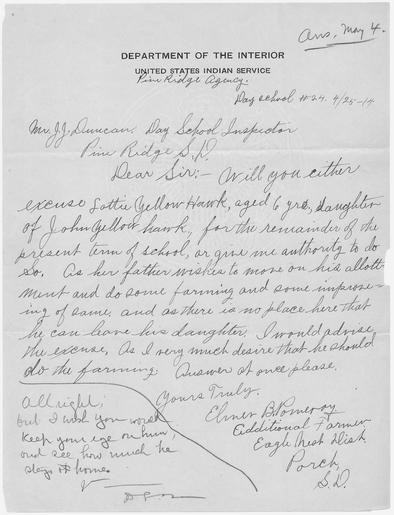 Ans, May 4.
DEPARTMENT OF THE INTERIOR
UNITED STATES INDIAN SERVICE
Pine Ridge Agency.
Day school #24. 4/25-14
Mr. J.J. Duncan. Day School Inspector
Pine Ridge S.D.
Dear Sir;- Will you either
excuse Lottie Yellow Hawk, aged 6 yrs, daughter
of John Yellow hawk, for the remainder of the
present term of school, or give me authority to do
so. As her father wishes to move on his allott
ment and do some farming and some improve-
ing of same, and as there is no place here that
he can leave his daughter. I would advise
the excuse. As I very much desire that he should
do the farming. Answer at once please.
Yours Truly.
Elmer B. Pomeroy
Additional Farmer
Eagle Nest Dist.
Porch
S.D.
All right;
but I wish you would
keep your eye on him,
and see how much he
stays at home.